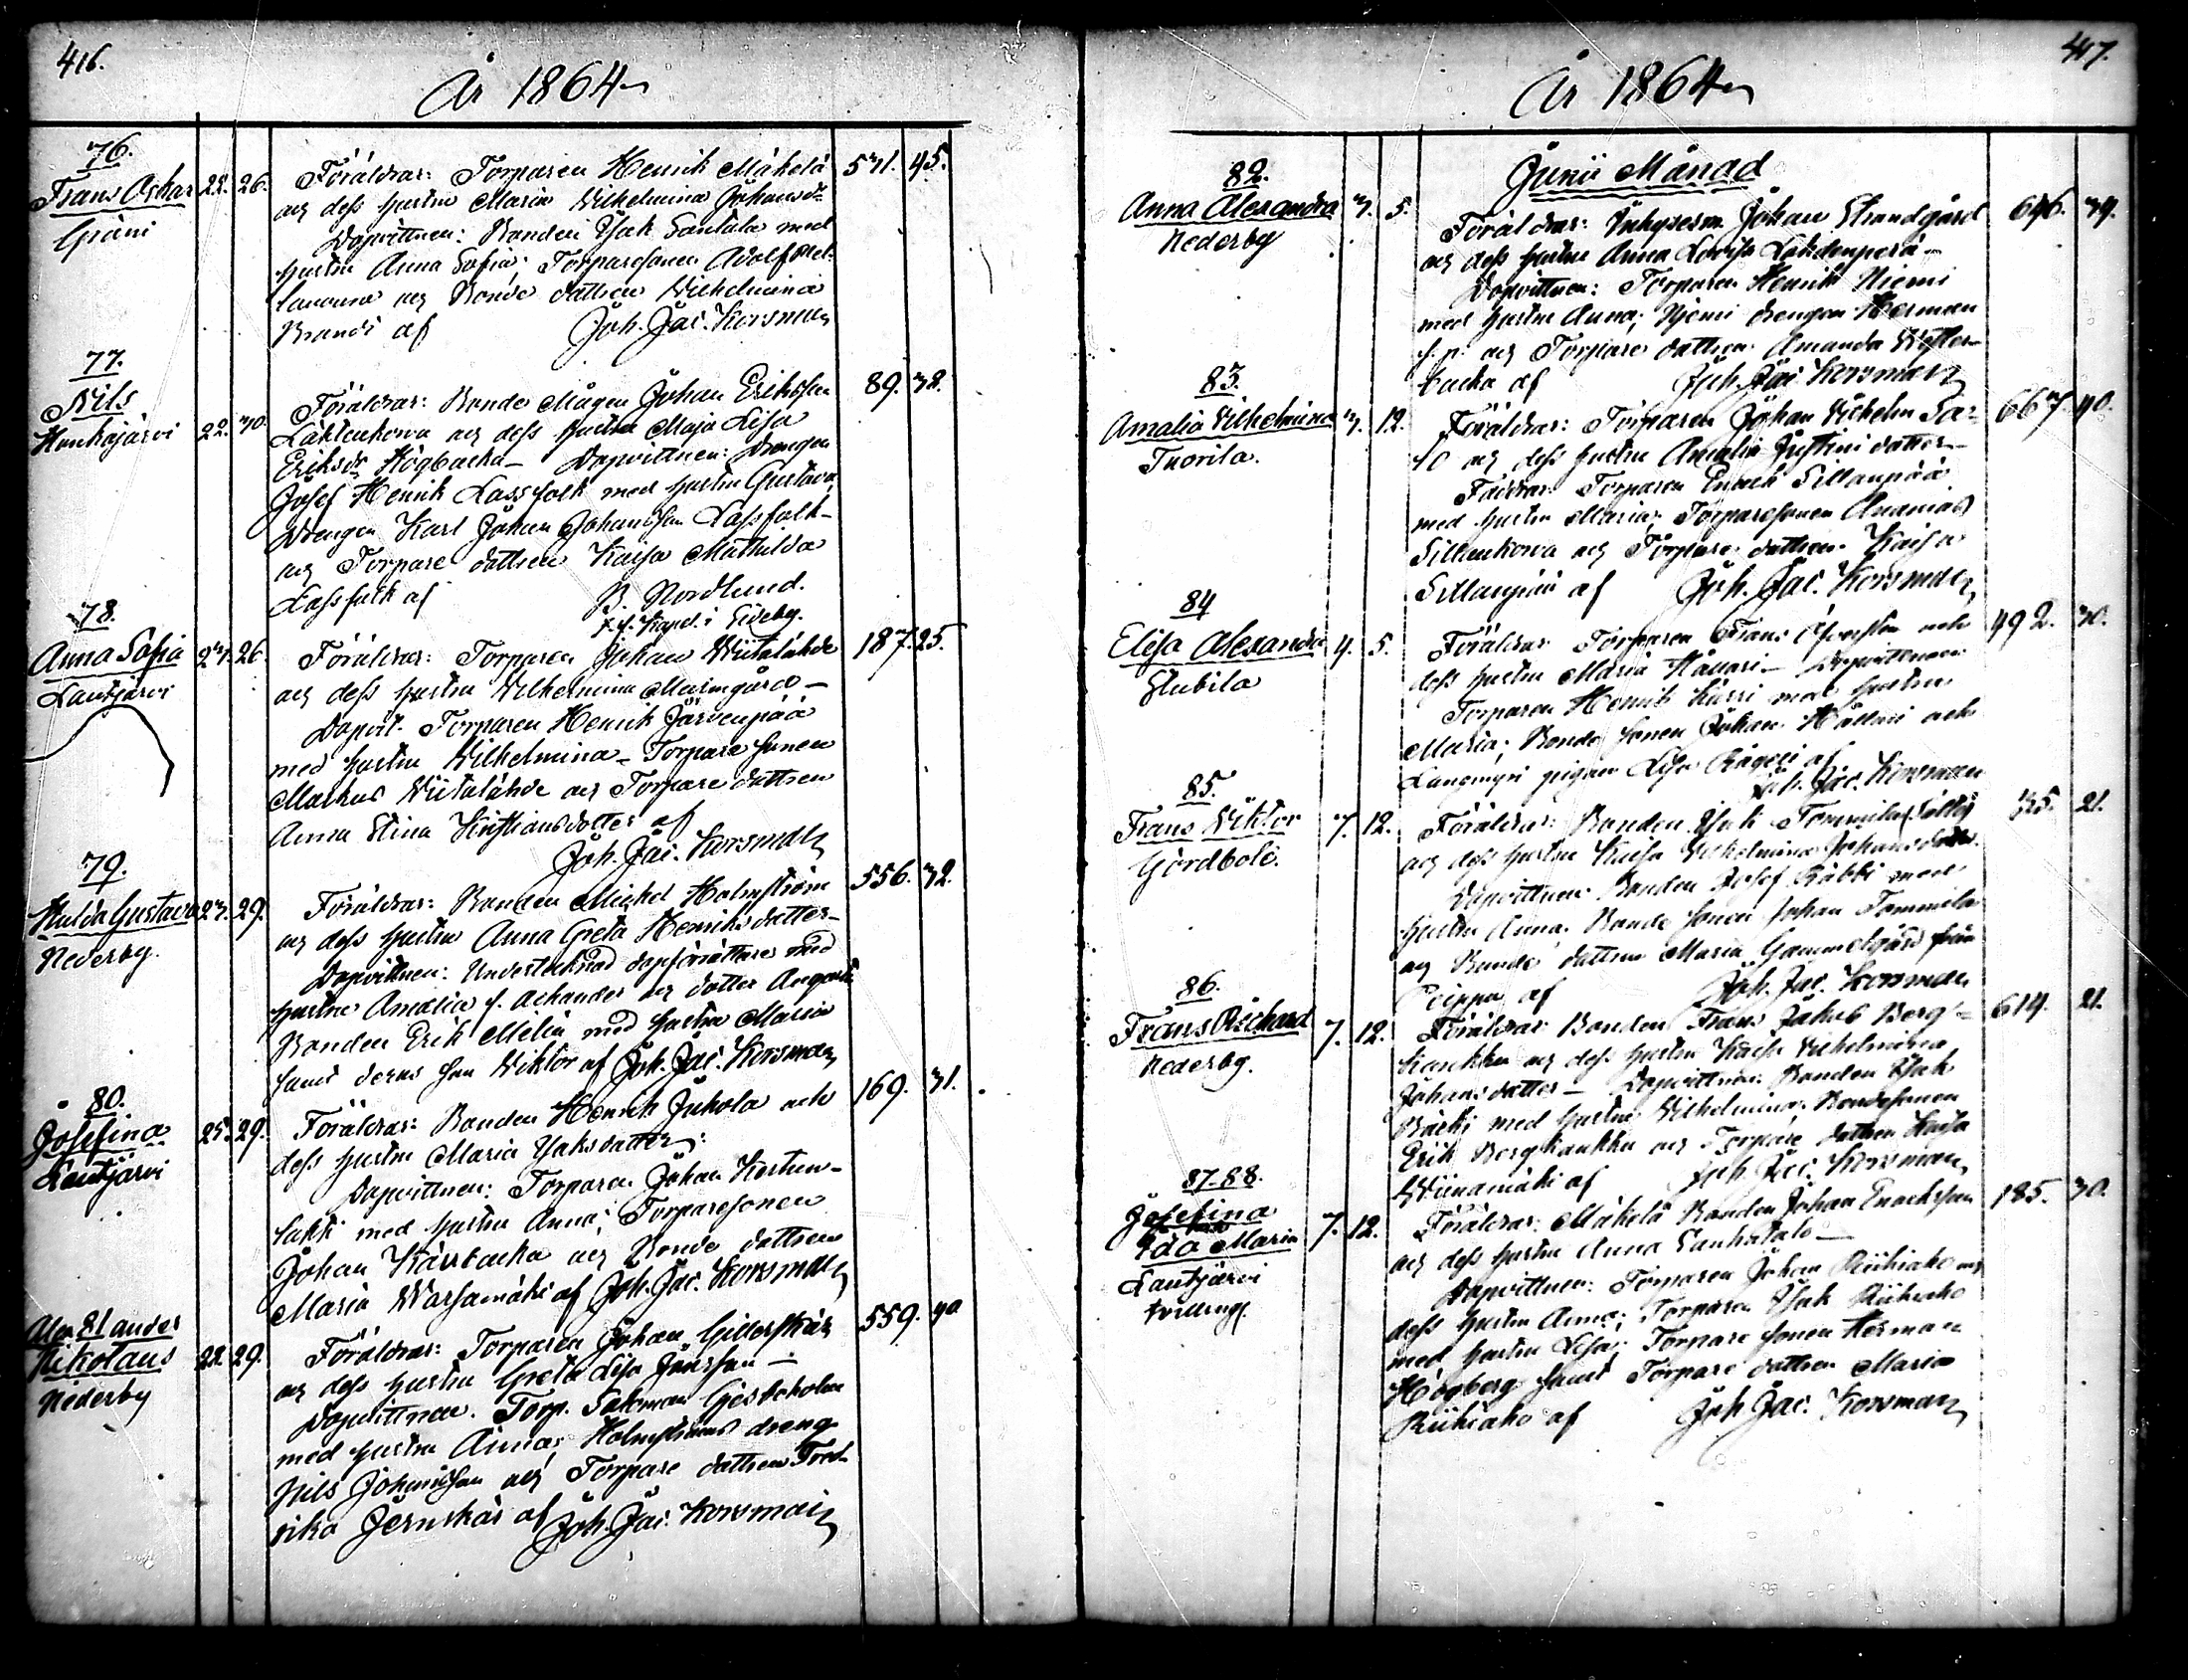 416.
År 1864
76.
Frans Oskar 22. 26. Föräldrar: Torparen Henrik Mäkelä 571. 45.
Gräni
och dess hustru Maria Wilhelmina Johansdr
Dopvittnen: Bonden Isak Santala med
hustru Anna Sofia; Torparesonen Adolf
och Bonde dottren Wilhelmina
Brandi af Joh. Jac. Korsman
77.
Nils
Honkajärvi 22. 30. Föräldrar: Bonde Mågen Johan Eriksson 89. 32.
och dess hustru Maja Lisa
Eriksdr Högbacka – Dopvittnen: Drengen
Josef Henrik Lassfolk med hustru Gustava,
Drengen Karl Johan Johansson Lassfolk
och Torpare dottren Kaisa Mathilda
Lassfolk af B. Nordlund.
t.f. Kapel. i Sideby.
78.
Anna Sofia 23. 26. Föräldrar: Torparen Johan Wiitalähde 187. 25.
Lautjärvi
och dess hustru Wilhelmina Malmgård –
Dopvit. Torparen Henrik Järvenpää
med hustru Wilhelmina – Torpare sonen
Markus Wiitalähde och Torpare dottren
Anna Stina Kristiansdotter af
Joh. Jac. Korsman
79.
Hulda Gustava 23. 29. Föräldrar: Bonden Mickel Holmström 556. 32.
Nederby.
och dess hustru Anna Greta Henriksdotter –
Dopvittnen: Undertecknad dopförrättare med
hustru Amalia f. Achander och dotter Augusta
Bonden Erik Melin med hustru Maria
samt deras son Wiktor af Joh. Jac. Korsman
80.
Josefina 25. 29. Föräldrar: Bonden Henrik Jukola och 169. 31.
Lautjärvi
dess hustru Maria Isaksdotter:
Dopvittnen: Torparen Johan
med hustru Anna; Torparesonen
Johan Kärrbacka och Bonde dottren
Maria Warsamäki af Joh. Jac. Korsman
Alex 81 ander
Nikolaus 22. 29. Föräldrar: Torparen Johan Gillerskär 559. 40
Nederby
och dess hustru Greta Lisa Jönsson –
Dopvittnen. Torp. Salomon Gäsboholm
med hustru Anna; Holmströms dreng
Nils Johansson och Torpare dottren Fred-
rika Jernskär af Joh. Jac. Korsman
417.
År 1864
Junii Månad
82.
Anna Alexandra 3. 5. Föräldrar: Inhysesm. Johan Strandgård 646. 39.
Nederby
och dess hustru Anna Lovisa Lahdenperä –
Dopvittnen: Torparen Henrik Niemi
med hustru Anna; Niemi drengen Herman
och Torpare dottren Amanda Wester-
backa af Joh. Jac. Korsman
83.
Amalia Wilhelmina 3. 12. Föräldrar: Torparen Johan Wilhelm Sa- 667. 40.
Tuorila.
lo och dess hustru Amalia Justinidotter –
Faddrar: Torparen Enock Sillanpää
med hustru Maria; Torparesonen Ananias
och Torpare dottren Kaisa
Sillanpää af Joh. Jac. Korsman
84
Elisa Alexandra 4. 5. Föräldrar: Torparen Frans och 492. 30.
Stubila
dess hustru Maria – Dopvittnen:
Torparen Henrik med hustru
Maria; Bonde sonen Johan och
pigan Lisa af
Joh. Jac. Korsman
85.
Frans Wiktor 7. 12. Föräldrar: Bonden Isak Tommila 21.
Gördbole.
och dess hustru Kaisa Wilhelmina Johansdotter.
Dopvittnen: Bonden Josef med
hustru Anna; Bonde sonen Johan Tommila
och Bonde dottren Maria Gammelgård från
af Joh. Jac. Korsman
86.
Frans Richard 7. 12. Föräldrar: Bonden Frans Jakob Berg- 614. 21.
Nederby.
kaukku och dess hustru Kaisa Wilhelmina
Johansdotter – Dopvittnen: Bonden Isak
med hustru Wilhelmina; Bondesonen
Erik Bergkaukku och Torpare dottren Kaisa
af Joh. Jac. Korsman
87-88.
Josefina
Ida Maria 7. 12. Föräldrar: Mäkelä Bonden Johan Enocksson 185. 30.
Lautjärvi
tvilling.
och dess hustru Anna
Dopvittnen: Torparen Johan Riikiaho och
dess hustru Anna; Torparen Isak Riikiaho
med hustru Lisa; Torpare sonen Herman
Högberg samt Torpare dottren Maria
Riikiaho af Joh. Jac. Korsman